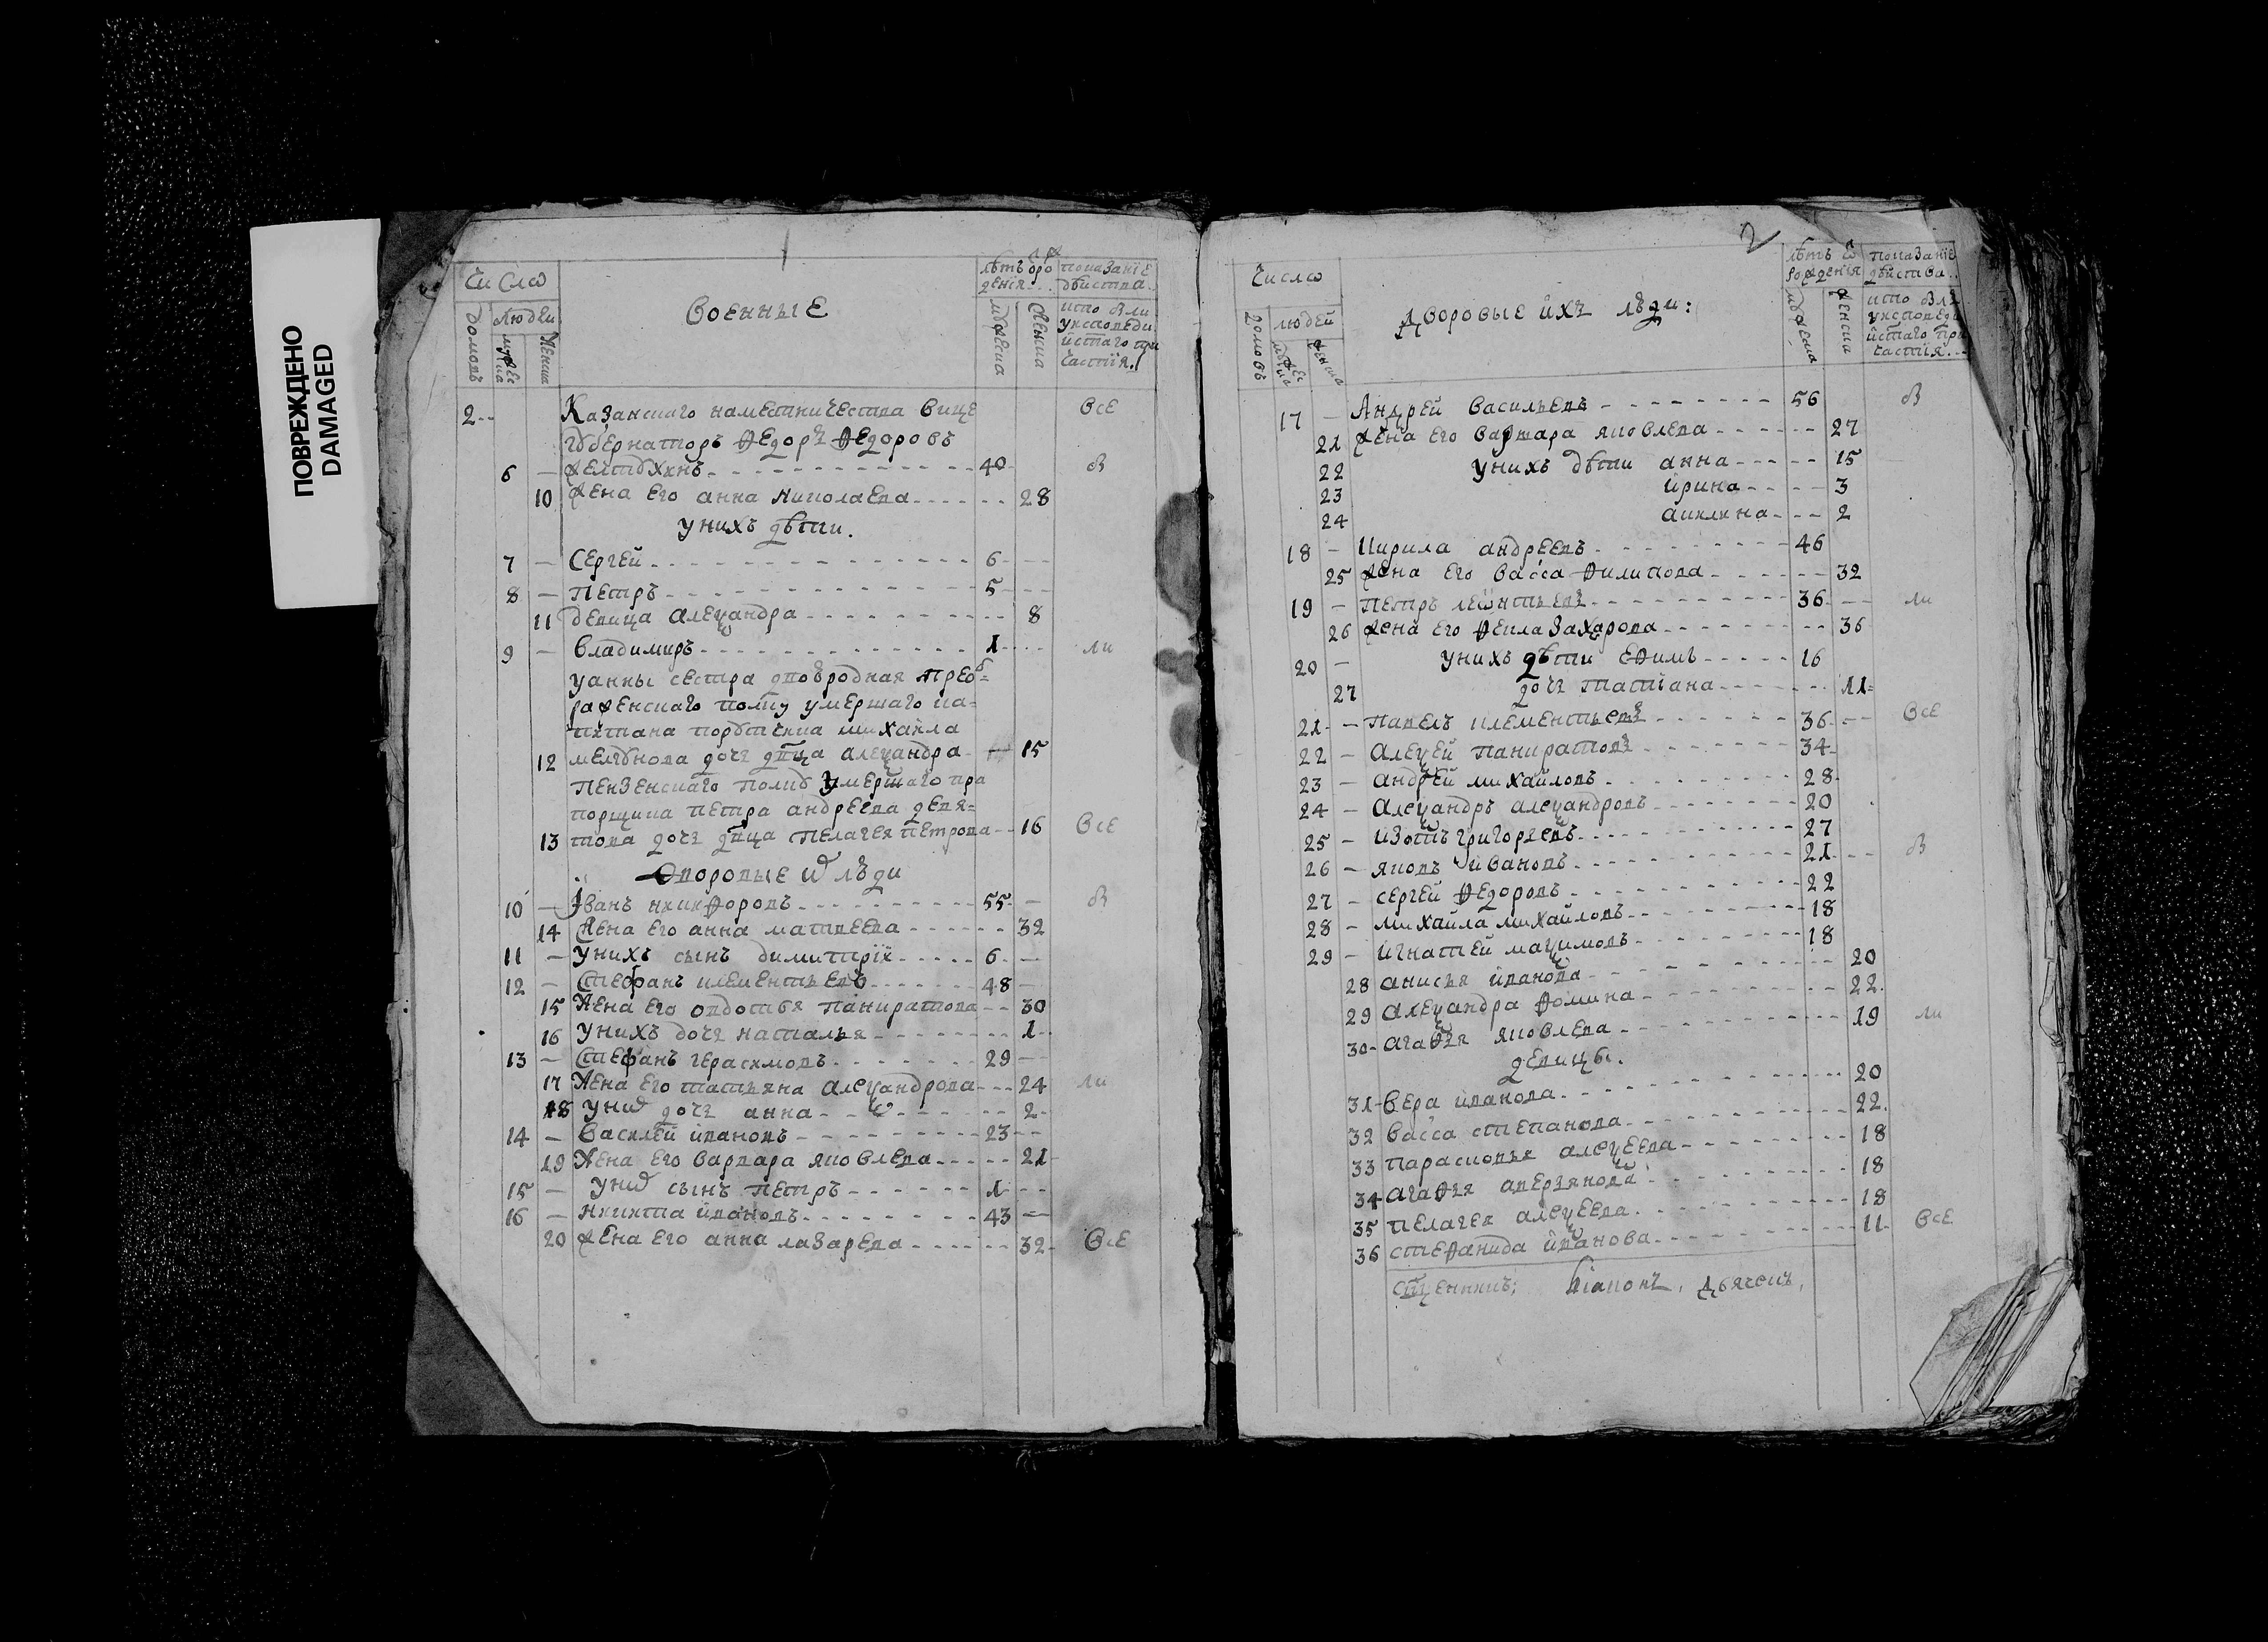 ПОВРЕЖДЕНО
DAMAGED
Число
Военные
лѣтъ ѿ рож
денїя
показанїе
дѣйства
домовъ
людей
мужеска
женска
мужеска
женска
кто былъ
у исповѣди
и с҃таго при
частїя
2 Казанскаго намѣстничества вице Все
губернаторъ Ѳедоръ Ѳедоровъ
6 — Желтухинъ 40 в
10 жена Его анна николаева 28
у нихъ дѣти.
7 — Сергей 6
8 — Петръ 5
11 девица алеѯандра 8
9 — Владимиръ 1 ли
у анны сестра двоюродная преоб=
раженскаго полку умершаго ка=
питана поручика михаила
12 мелгунова дочь двца алеѯандра 15
Пензенскаго полку умершаго пра
порщика петра андреева девя=
13 това дочь двца Пелагея петрова 16 Все
Дворовые их люди
10 — Іванъ никиѳоровъ 55 в
14 Жена Его анна матвеева 32
11 — У нихъ сынъ димитрїй 6
12 — Стефанъ клементьевъ 48
15 Жена Его овдотья панкратова 30
16 У нихъ дочь наталья 1
13 — Стефанъ герасимовъ 29
17 Жена Его татьяна алеѯандрова 24 ли
18 У них дочь анна 2
14 — Василей ивановъ 23
19 Жена Его варвара яковлева 21
15 — У них сынъ петръ 1
16 — никита ивановъ 43
20 жена Его анна лазарева 32 Все
2
Число
Дворовые ихъ люди:
лѣтъ ѿ
рожденїя
показанїе
дѣйства
домовъ
людей
мужеска
женска
мужеска
женска
кто былъ
у исповеди
и с҃таго при
частїя
17 — Андрей Васильевъ 56 в
21 жена Его варвара яковлева 27
22 у нихъ дѣти анна 15
23 ирина 3
24 акилина 2
18 — Кирила андреевъ 46
25 жена Его васса Ѳилипова 32
19 — Петръ леѡнтьевъ 36 ли
26 жена Его Ѳекла Захарова 36
20 — у нихъ дѣти Еѳимъ 16
27 дочь татїана 11
21 — Павелъ клементьевъ 36 Все
22 — алеѯей панкратовъ 34
23 — андрей михайловъ 28
24 — алеѯандръ алеѯандровъ 20
25 — Изотъ григорьевъ 27
26 — яковъ ивановъ 21 в
27 — сергей Ѳедоровъ 22
28 — михайла михайловъ 18
29 — игнатей маѯимовъ 18
28 анисья иванова 20
29 алеѯандра Ѳомина 22
30 агаѳья яковлева 19 ли
девицы.
31 вера иванова 20
32 васса степанова 22
33 парасковья алеѯеева 18
34 агаѳья аверьянова 18
35 пелагея алеѯеева 18
36 стеѳанида иванова 11 Все
Сщенникъ; Діаконъ, Дьячекъ,